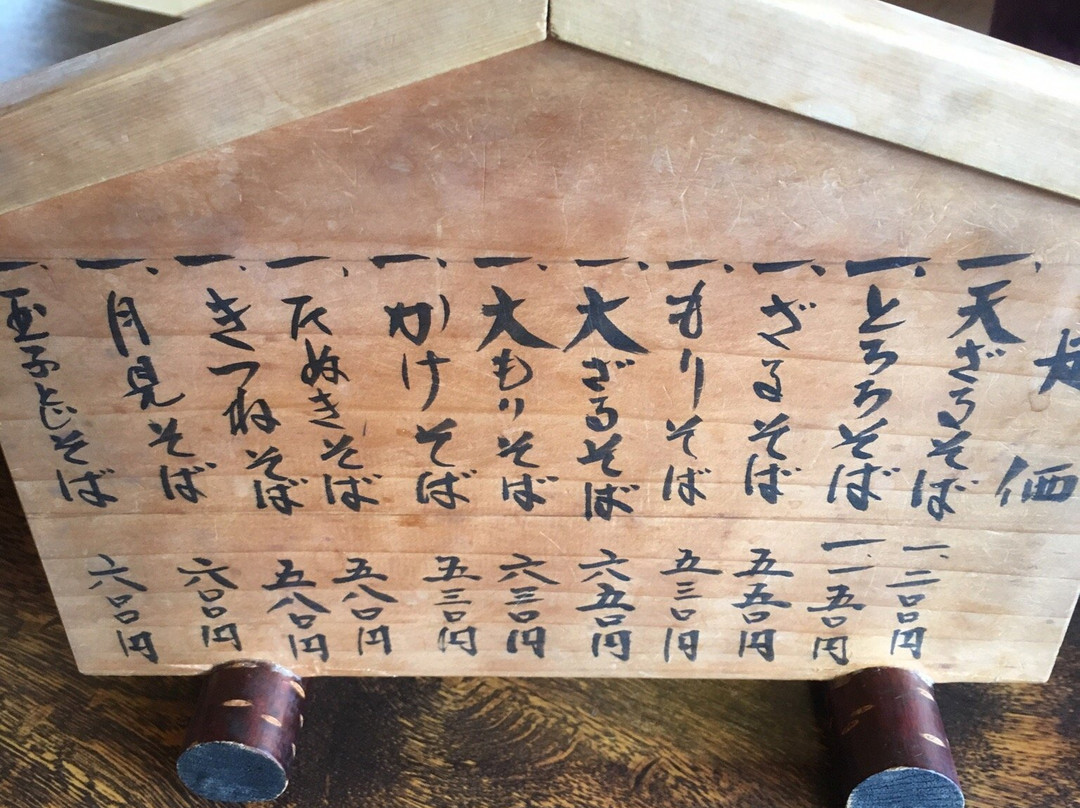 価
一、天ざるそば 一、二〇〇円
一、とろろそば 一、一五〇円
一、ざるそば 五五〇円
一、もりそば 五三〇円
一、大ざるそば 六五〇円
一、大もりそば 六三〇円
一、かけそば 五三〇円
一、たぬきそば 五八〇円
一、きつねそば 五八〇円
一、月見そば 六〇〇円
一、玉子とじそば 六〇〇円